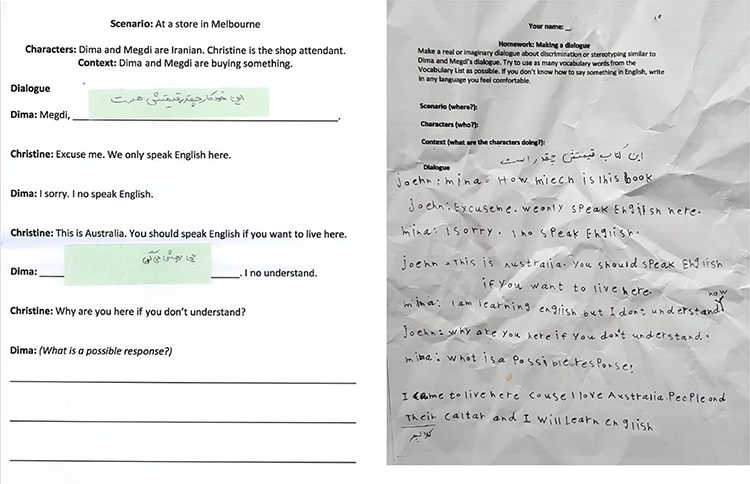 Scenario: At a store in Melbourne
Characters: Dima and Megdi are Iranian. Christine is the shop attendant.
Context: Dima and Megdi are buying something.
Dialogue
این خودکار چقدر قیمتش هست
Dima: Megdi,
Christine: Excuse me. We only speak English here.
Dima: I sorry. I no speak English.
Christine: This is Australia. You should speak English if you want to live here.
Dima: . I no understand.
Christine: Why are you here if you don't understand?
Dima: (What is a possible response?)
Your name:
Homework: Making a dialogue
Make a real or imaginary dialogue about discrimination or stereotyping similar to
Dima and Megdi's dialogue. Try to use as many vocabulary words from the
Vocabulary List as possible. If you don't know how to say something in English, write
in any language you feel comfortable.
Scenario (where?):
Characters (who?):
Context (what are the characters doing?):
این کتاب قیمتش چقدر است
Dialogue
Joehn: mina = How miech is this book
Joehn: Excuseme. we only speak English here.
mina: I sorry. I no speak English.
Joehn = This is Australia. You should speak English
if you want to live here.
mina: I am learning english but I dont understand now
Joehn: why are you here if you don't understand.
mina: what is a possible response!
I came to live here couse I love Australia. People and
their caltar and I will learn english